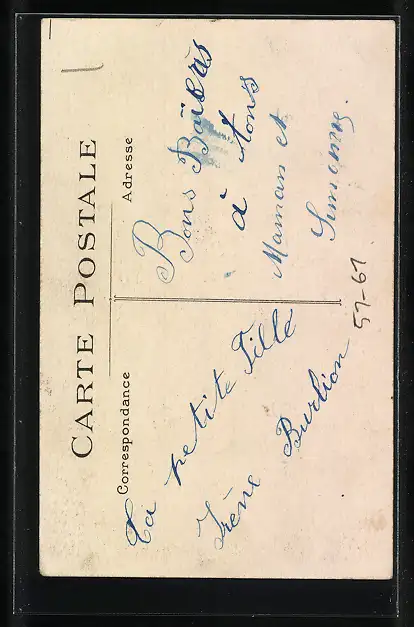 CARTE POSTALE
Correspondance
Ta petite Fille
Irène Burlion
Adresse
Bons Baisers
à tous
Maman et
57-61